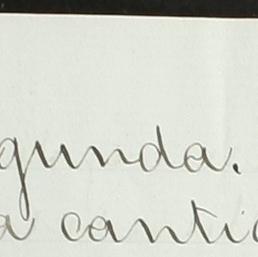 gunda.
a cantid